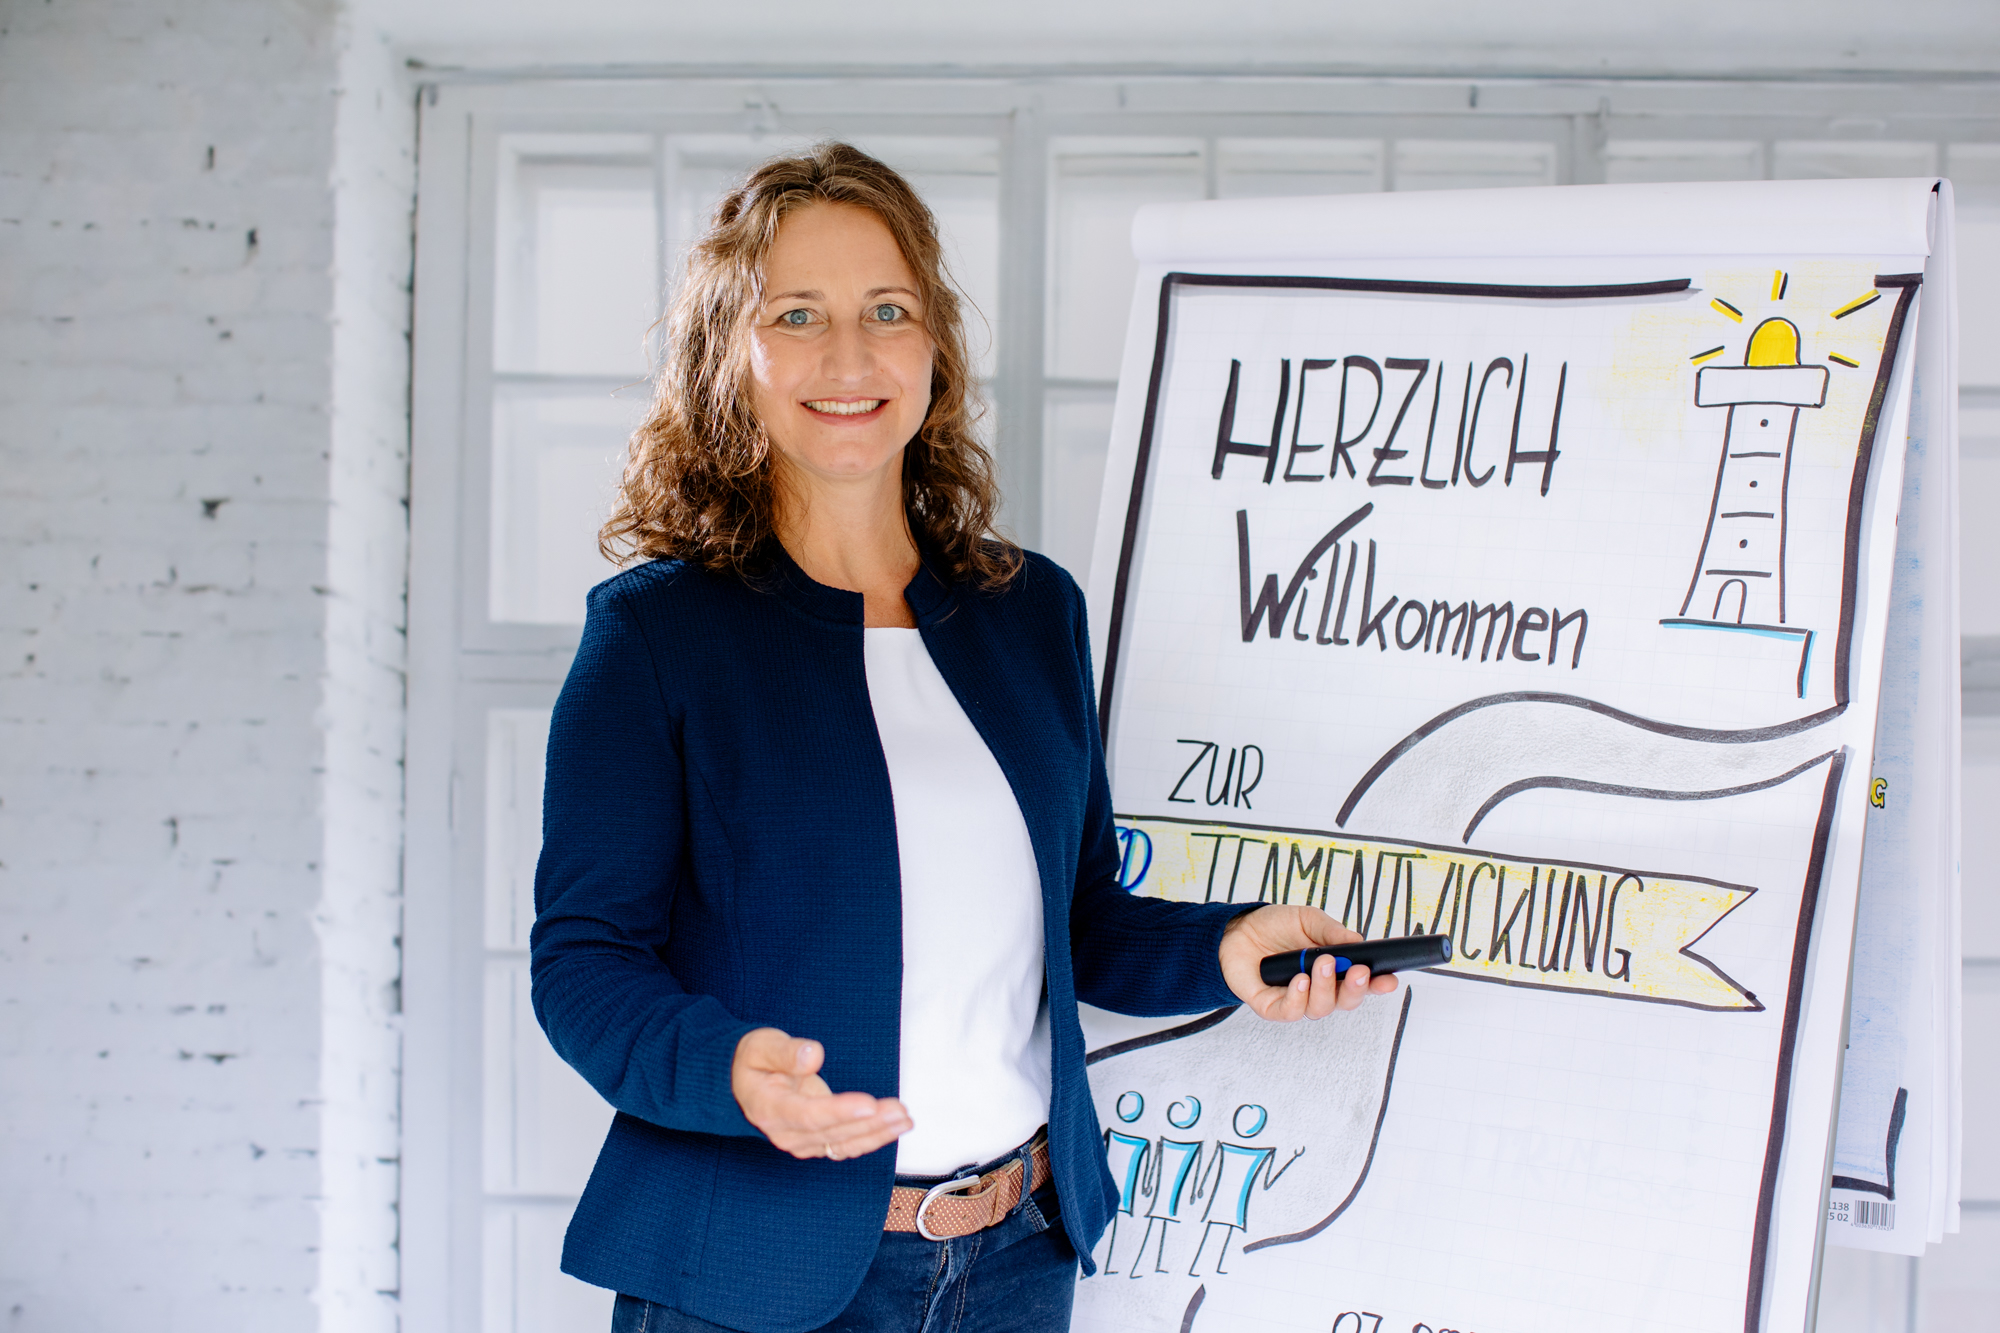 HERZLICH
Willkommen
ZUR
TEAMENTWICKLUNG
G
1138
5 02